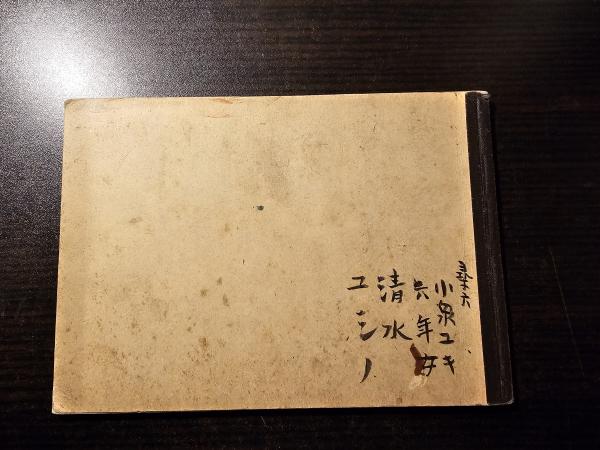 尋六
小泉ユキ
六年女
清水
ユシノ